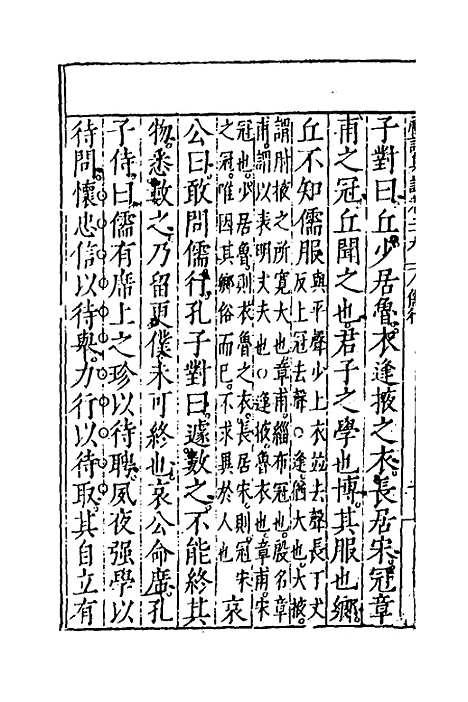 子對曰丘少居魯衣逢掖之衣長居宋冠章
甫之冠丘聞之也君子之學也博其服也鄉
丘不知儒服
與平聲少上衣並去聲長丁丈
反上冠去聲○逢猶大也大掖
謂肘掖之所寬大也章甫緇布冠也殷名章
甫謂以表明丈夫也○逢掖魯衣也章甫宋
冠也少居魯則衣魯之衣長居宋則冠宋
之冠唯因其鄉俗而已不求異於人也
哀
公曰敢問儒行孔子對曰遽數之不能終其
物悉數之乃留更僕未可終也哀公命席孔
子侍曰儒有席上之珍以待聘夙夜强學以
待問懷忠信以待舉力行以待取其自立有